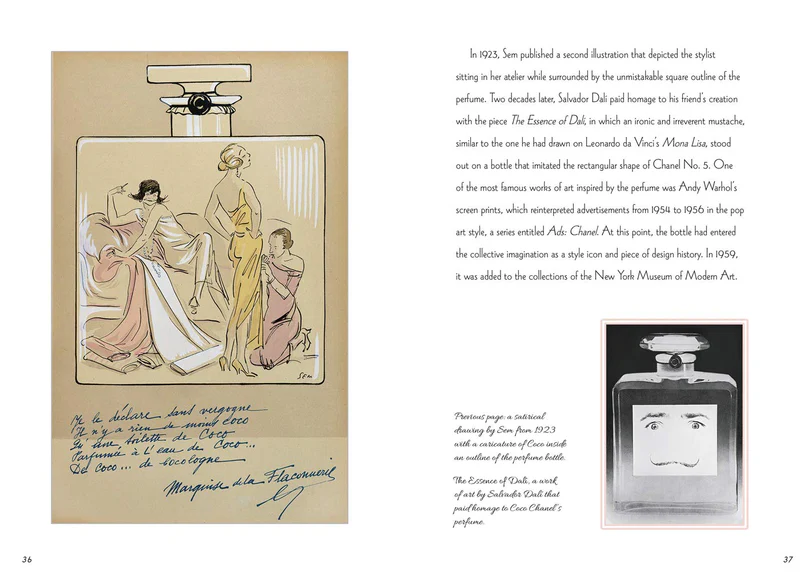 SEM
Je le déclare sans vergogne
Il n'y a rien de moins coco
Qu'une toilette de Coco
Parfumée à l'eau de Coco...
De Coco... de Cocologne
Marquise de la Flaconnerie
36
In 1923, Sem published a second illustration that depicted the stylist
sitting in her atelier while surrounded by the unmistakable square outline of the
perfume. Two decades later, Salvador Dalí paid homage to his friend's creation
with the piece The Essence of Dalí, in which an ironic and irreverent mustache,
similar to the one he had drawn on Leonardo da Vinci's Mona Lisa, stood
out on a bottle that imitated the rectangular shape of Chanel No. 5. One
of the most famous works of art inspired by the perfume was Andy Warhol's
screen prints, which reinterpreted advertisements from 1954 to 1956 in the pop
art style, a series entitled Ads: Chanel. At this point, the bottle had entered
the collective imagination as a style icon and piece of design history. In 1959,
it was added to the collections of the New York Museum of Modern Art.
Previous page: a satirical
drawing by Sem from 1923
with a caricature of Coco inside
an outline of the perfume bottle.
The Essence of Dalí, a work
of art by Salvador Dalí that
paid homage to Coco Chanel's
perfume.
37